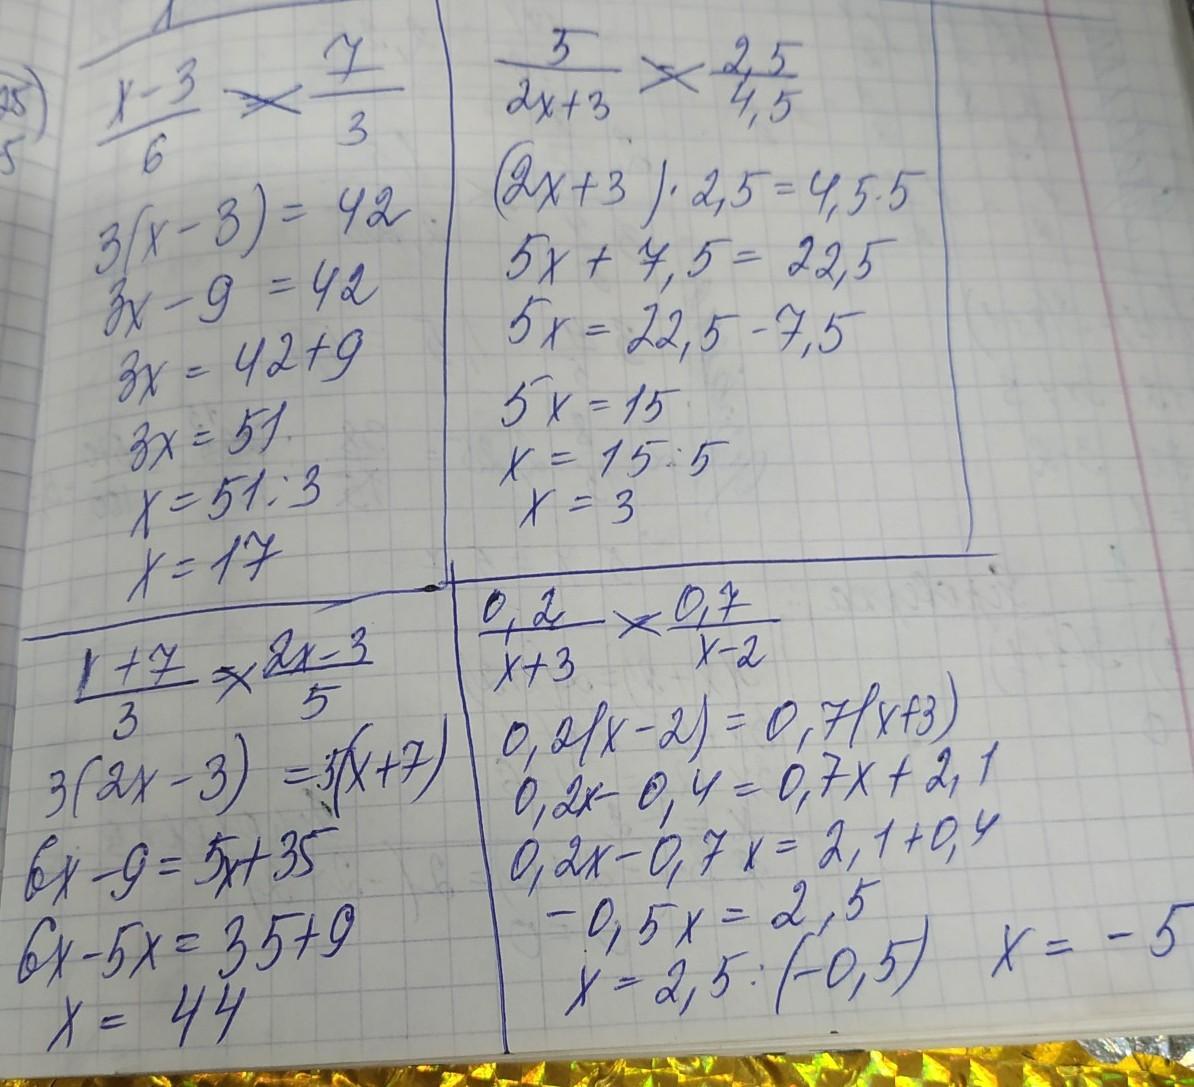 x-3/6 = 7/3
3(x-3) = 42
3x-9 = 42
3x = 42+9
3x = 51
x = 51:3
x = 17
5/2x+3 = 2,5/4,5
(2x+3)·2,5 = 4,5·5
5x + 7,5 = 22,5
5x = 22,5 - 7,5
5x = 15
x = 15:5
x = 3
x+7/3 = 2x-3/5
3(2x-3) = 5(x+7)
6x-9 = 5x+35
6x-5x = 35+9
x = 44
0,2/x+3 = 0,7/x-2
0,2(x-2) = 0,7(x+3)
0,2x-0,4 = 0,7x+2,1
0,2x-0,7x = 2,1+0,4
-0,5x = 2,5
x = 2,5:(-0,5) x = -5